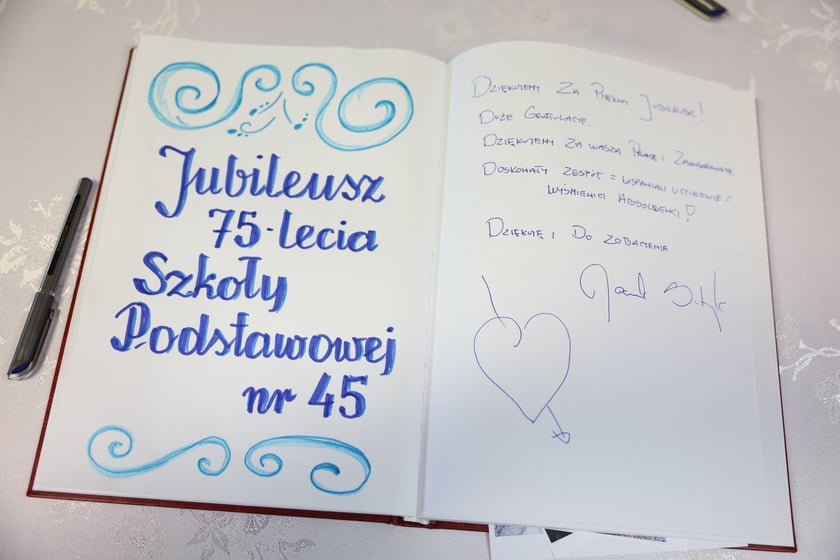 Jubileusz
75-lecia
Szkoły
Podstawowej
nr 45
DZIĘKUJEMY ZA PIĘKNY JUBILEUSZ!
DUŻE GRATULACJE.
DZIĘKUJEMY ZA WASZĄ PRACĘ I ZAANGAŻOWANIE
DOSKONAŁY ZESPÓŁ = WSPANIALI UCZNIOWIE =
WYŚMIENICI ABSOLWENCI!
DZIĘKUJĘ I DO ZOBACZENIA